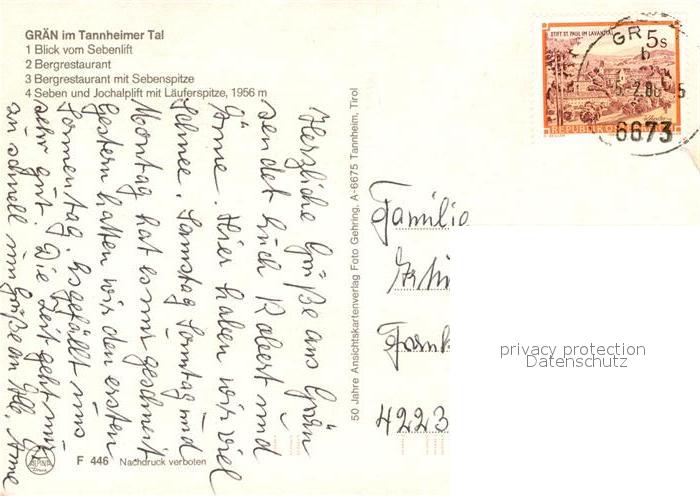 GRÄN im Tannheimer Tal
1 Blick vom Sebenlift
2 Bergrestaurant
3 Bergrestaurant mit Sebenspitze
4 Seben und Jochalplift mit Läuferspitze, 1956 m
Herzliche Grüße aus Grän
sendet Euch Robert und
Anne. Hier haben wir viel
Schnee. Samstag Sonntag und
Montag hat es nur geschneit
Gestern hatten wir den ersten
Sonnentag. Es gefällt uns
sehr gut. Die Zeit geht nur
zu schnell rum. Grüße an Alle, Anne
50 Jahre Ansichtskartenverlag Foto Gehring, A-6675 Tannheim, Tirol
F 446 Nachdruck verboten
STIFT ST. PAUL IM LAVANTTAL
5s
REPUBLIK
GR
b
6673
Familie
4223
privacy protection
Datenschutz